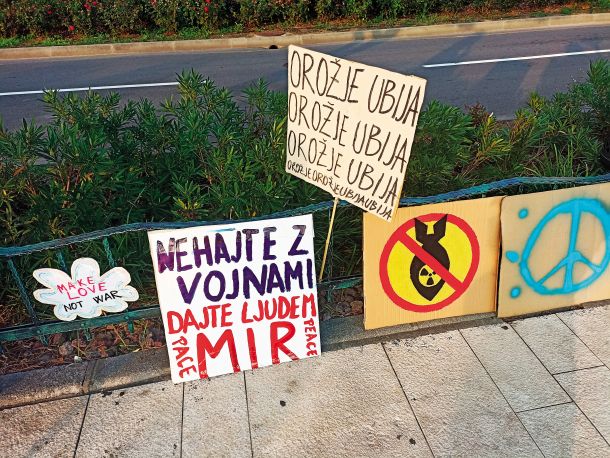 OROŽJE UBIJA
OROŽJE UBIJA
OROŽJE UBIJA
OROŽJE OROŽJE UBIJA UBIJA
MAKE
LOVE
NOT WAR
NEHAJTE Z
VOJNAMI
DAJTE LJUDEM
PACE
MIR
PEACE